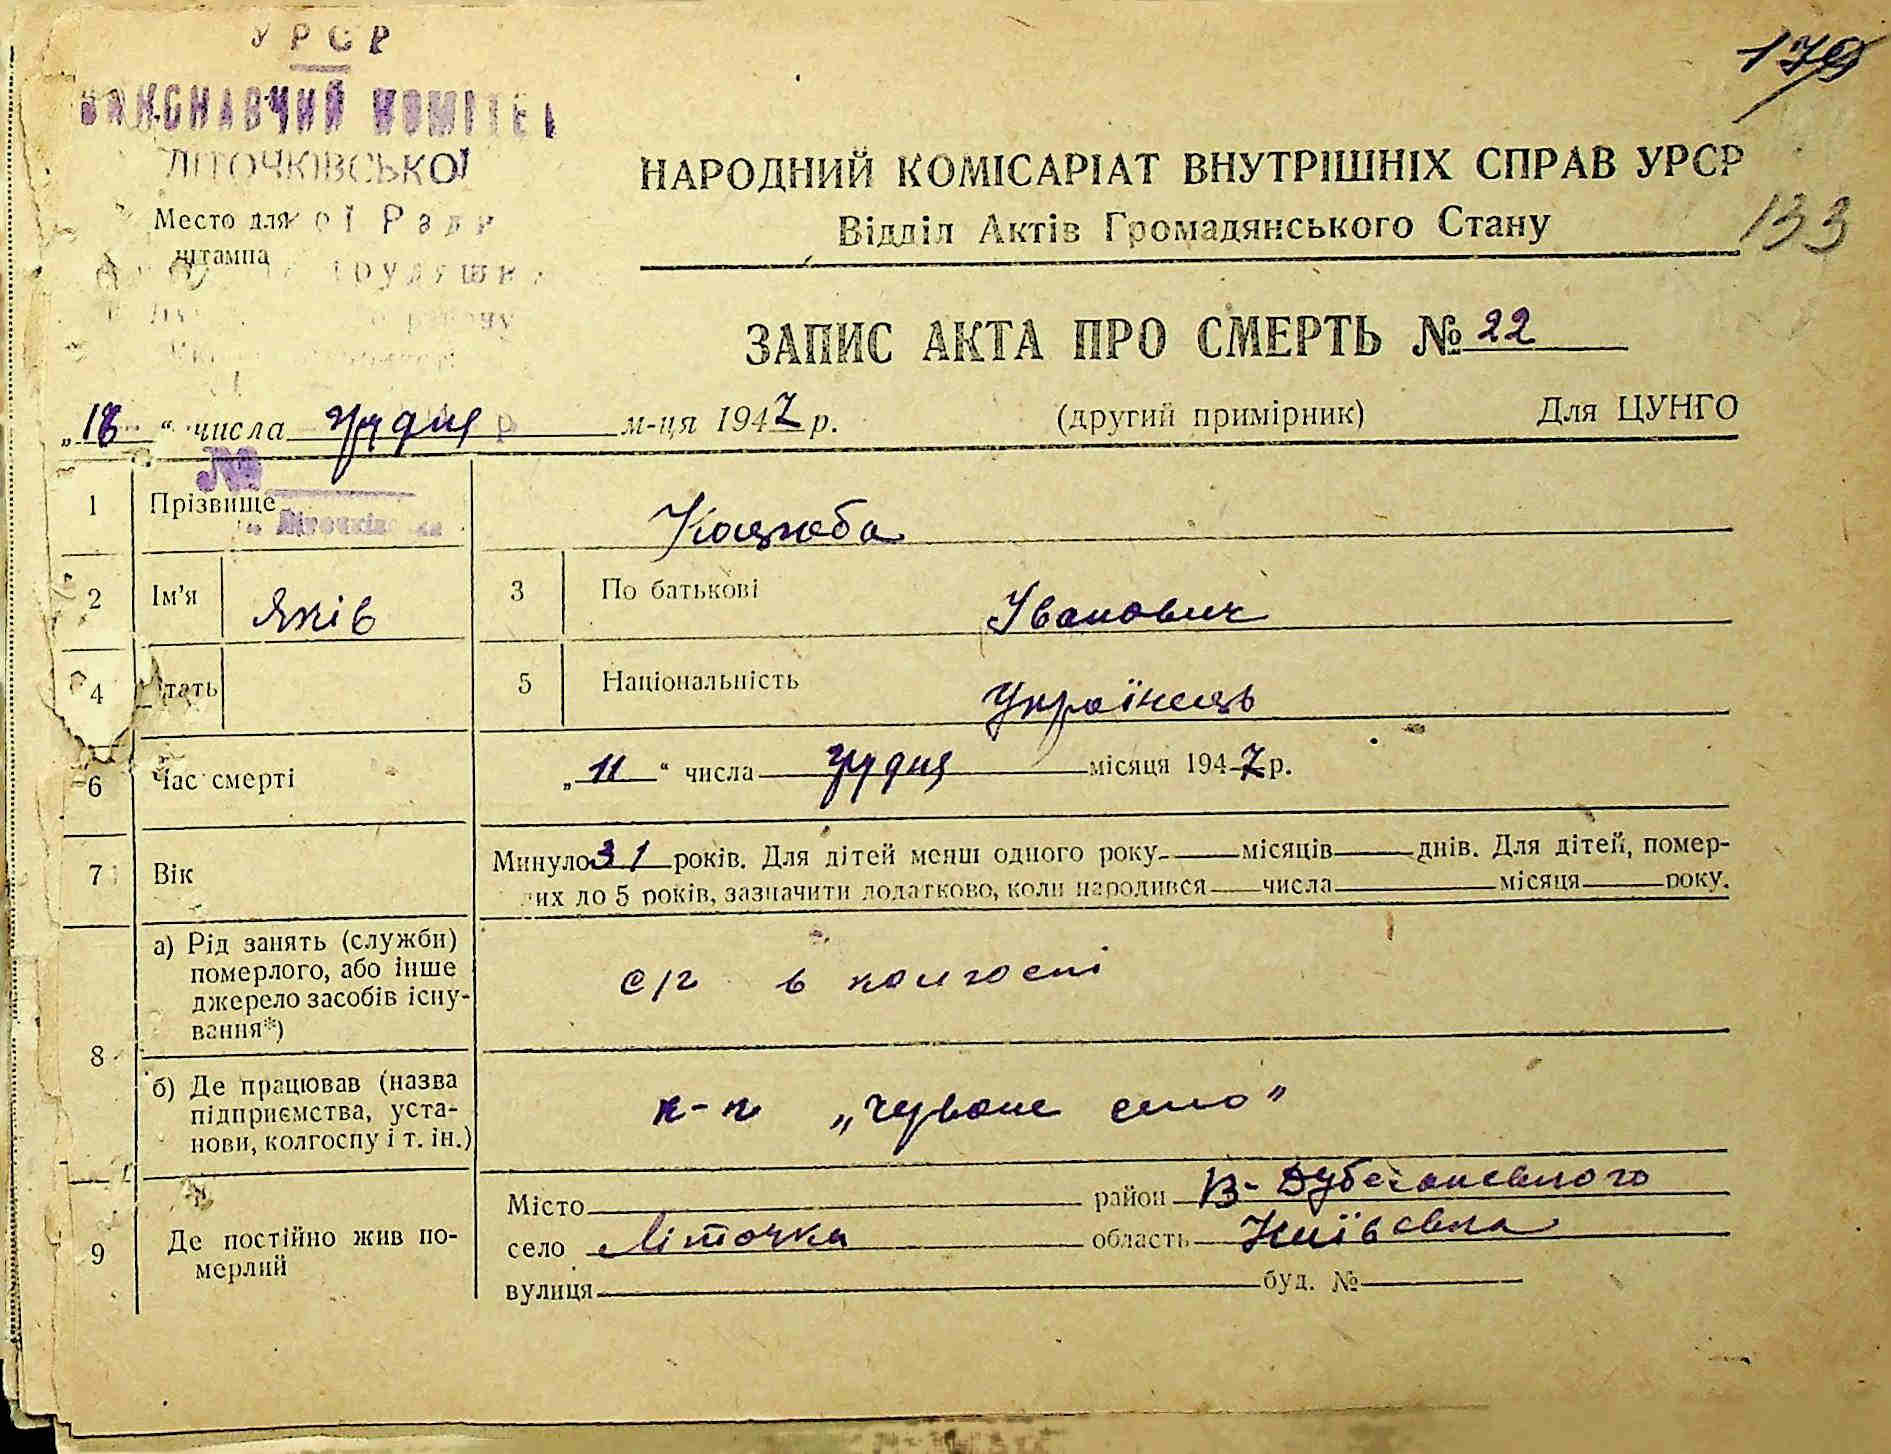 УРСР
ВИКОНАВЧИЙ КОМІТЕТ
ЛІТОЧКІВСЬКОЇ
Место для
штампа
179
НАРОДНИЙ КОМІСАРІАТ ВНУТРІШНІХ СПРАВ УРСР
Відділ Актів Громадянського Стану
133
ЗАПИС АКТА ПРО СМЕРТЬ № 22
„18“ числа грудня м-ця 1947 р. (другий примірник) Для ЦУНГО
№
1 Прізвище Коцюба
2 Ім'я Яків 3 По батькові Іванович
4 Стать 5 Національність Українець
6 Час смерті „11“ числа грудня місяця 1947 р.
7 Вік Минуло 31 років. Для дітей менш одного року місяців днів. Для дітей, помер-
лих до 5 років, зазначити додатково, коли народився числа місяця року.
8 а) Рід занять (служби)
померлого, або інше
джерело засобів існу-
вання*)
с/г в колгоспі
б) Де працював (назва
підприємства, уста-
нови, колгоспу і т. ін.)
к-п „Червоне село"
9 Де постійно жив по-
мерлий
Місто район В-Дубечанського
село Літочки область Київська
вулиця буд. №